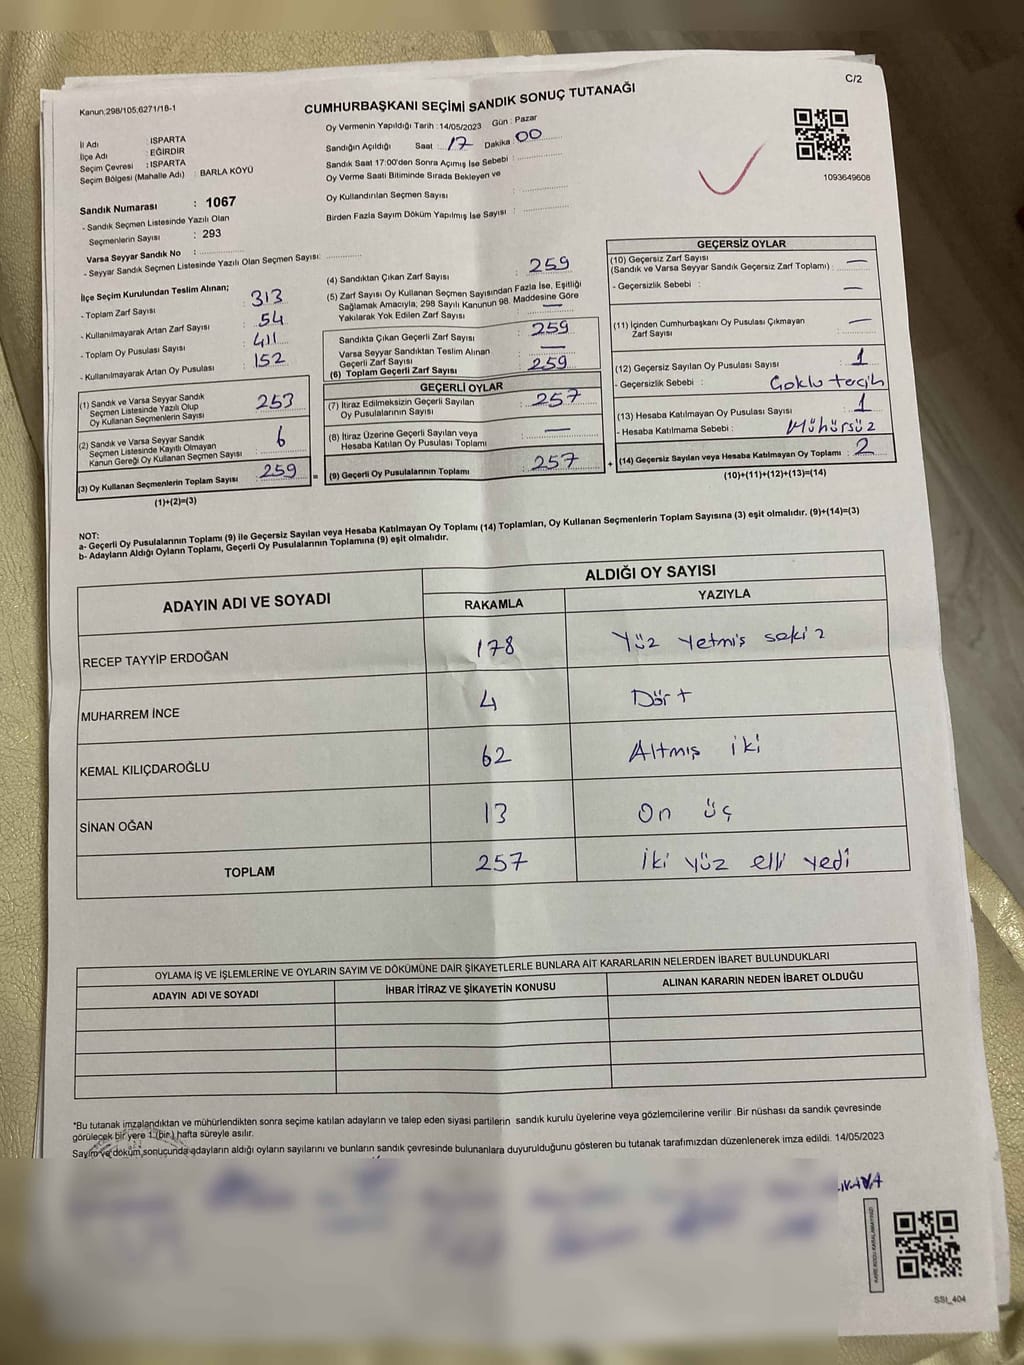 Kanun;298/105;6271/18-1
C/2
CUMHURBAŞKANI SEÇİMİ SANDIK SONUÇ TUTANAĞI
İl Adı : ISPARTA
İlçe Adı : EĞİRDİR
Seçim Çevresi : ISPARTA
Seçim Bölgesi (Mahalle Adı) : BARLA KÖYÜ
Sandık Numarası : 1067
- Sandık Seçmen Listesinde Yazılı Olan
Seçmenlerin Sayısı : 293
Varsa Seyyar Sandık No :
- Seyyar Sandık Seçmen Listesinde Yazılı Olan Seçmen Sayısı:
Oy Vermenin Yapıldığı Tarih : 14/05/2023 Gün : Pazar
Sandığın Açıldığı Saat : 17 Dakika : 00
Sandık Saat 17:00'den Sonra Açımış İse Sebebi :
Oy Verme Saati Bitiminde Sırada Bekleyen ve
Oy Kullandırılan Seçmen Sayısı :
Birden Fazla Sayım Döküm Yapılmış İse Sayısı :
1093649608
İlçe Seçim Kurulundan Teslim Alınan;
- Toplam Zarf Sayısı : 313
- Kullanılmayarak Artan Zarf Sayısı : 54
- Toplam Oy Pusulası Sayısı : 411
- Kullanılmayarak Artan Oy Pusulası : 152
(1) Sandık ve Varsa Seyyar Sandık
Seçmen Listesinde Yazılı Olup
Oy Kullanan Seçmenlerin Sayısı : 253
(2) Sandık ve Varsa Seyyar Sandık
Seçmen Listesinde Kayıtlı Olmayan
Kanun Gereği Oy Kullanan Seçmen Sayısı : 6
(3) Oy Kullanan Seçmenlerin Toplam Sayısı : 259
(1)+(2)=(3)
(4) Sandıktan Çıkan Zarf Sayısı : 259
(5) Zarf Sayısı Oy Kullanan Seçmen Sayısından Fazla İse, Eşitliği
Sağlamak Amacıyla; 298 Sayılı Kanunun 98. Maddesine Göre
Yakılarak Yok Edilen Zarf Sayısı : —
Sandıkta Çıkan Geçerli Zarf Sayısı : 259
Varsa Seyyar Sandıktan Teslim Alınan
Geçerli Zarf Sayısı : —
(6) Toplam Geçerli Zarf Sayısı : 259
GEÇERLİ OYLAR
(7) İtiraz Edilmeksizin Geçerli Sayılan
Oy Pusulalarının Sayısı : 257
(8) İtiraz Üzerine Geçerli Sayılan veya
Hesaba Katılan Oy Pusulası Toplamı : —
= (9) Geçerli Oy Pusulalarının Toplamı : 257
GEÇERSİZ OYLAR
(10) Geçersiz Zarf Sayısı
(Sandık ve Varsa Seyyar Sandık Geçersiz Zarf Toplamı) : —
- Geçersizlik Sebebi : —
(11) İçinden Cumhurbaşkanı Oy Pusulası Çıkmayan
Zarf Sayısı : —
(12) Geçersiz Sayılan Oy Pusulası Sayısı : 1
- Geçersizlik Sebebi : Çoklu tecih
(13) Hesaba Katılmayan Oy Pusulası Sayısı : 1
- Hesaba Katılmama Sebebi : Mühürsüz
+ (14) Geçersiz Sayılan veya Hesaba Katılmayan Oy Toplamı : 2
(10)+(11)+(12)+(13)=(14)
NOT:
a- Geçerli Oy Pusulalarının Toplamı (9) ile Geçersiz Sayılan veya Hesaba Katılmayan Oy Toplamı (14) Toplamları, Oy Kullanan Seçmenlerin Toplam Sayısına (3) eşit olmalıdır. (9)+(14)=(3)
b- Adayların Aldığı Oyların Toplamı, Geçerli Oy Pusulalarının Toplamına (9) eşit olmalıdır.
ADAYIN ADI VE SOYADI ALDIĞI OY SAYISI
RAKAMLA YAZIYLA
RECEP TAYYİP ERDOĞAN 178 Yüz Yetmiş sekiz
MUHARREM İNCE 4 Dört
KEMAL KILIÇDAROĞLU 62 Altmış iki
SİNAN OĞAN 13 On üç
TOPLAM 257 iki yüz elli yedi
OYLAMA İŞ VE İŞLEMLERİNE VE OYLARIN SAYIM VE DÖKÜMÜNE DAİR ŞİKAYETLERLE BUNLARA AİT KARARLARIN NELERDEN İBARET BULUNDUKLARI
ADAYIN ADI VE SOYADI İHBAR İTİRAZ VE ŞİKAYETİN KONUSU ALINAN KARARIN NEDEN İBARET OLDUĞU
*Bu tutanak imzalandıktan ve mühürlendikten sonra seçime katılan adayların ve talep eden siyasi partilerin sandık kurulu üyelerine veya gözlemcilerine verilir Bir nüshası da sandık çevresinde
görülecek bir yere 1 (bir) hafta süreyle asılır.
Sayım ve döküm sonucunda adayların aldığı oyların sayılarını ve bunların sandık çevresinde bulunanlara duyurulduğunu gösteren bu tutanak tarafımızdan düzenlenerek imza edildi. 14/05/2023
KARE KODU KARALAMAYINIZ!
SSI_404